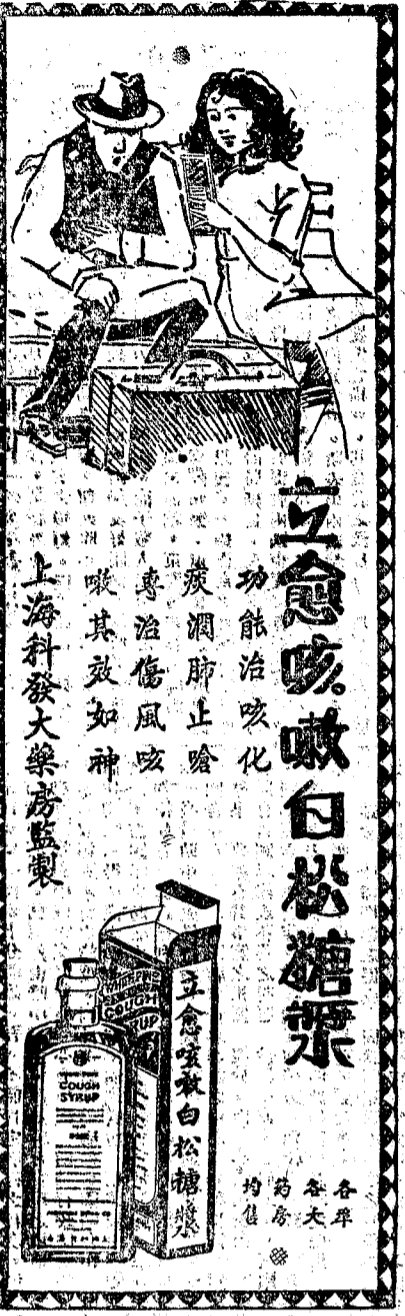 立愈咳嗽白松糖漿
功能治咳化
痰潤肺止嗆
專治傷風咳
嗽其效如神
上海科發大藥房監製
立愈咳嗽白松糖漿
COUGH
COUGH
SYRUP
各埠
各大
药房
均售